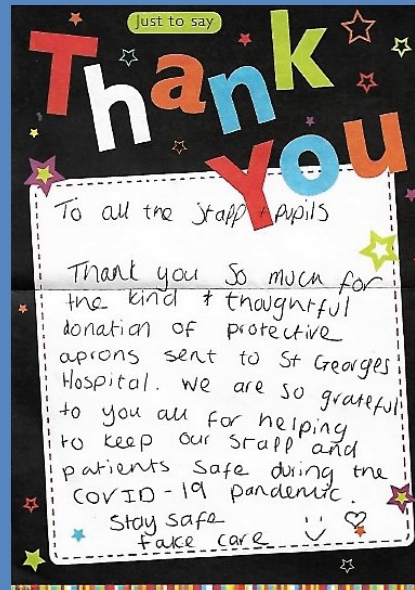 Just to say
Thank
You
To all the staff + Pupils
Thank you so much for
the kind & thoughtful
donation of protective
aprons sent to St Georges
Hospital. We are so grateful
to you all for helping
to keep our staff and
patients safe during the
COVID-19 pandemic.
Stay safe
take care